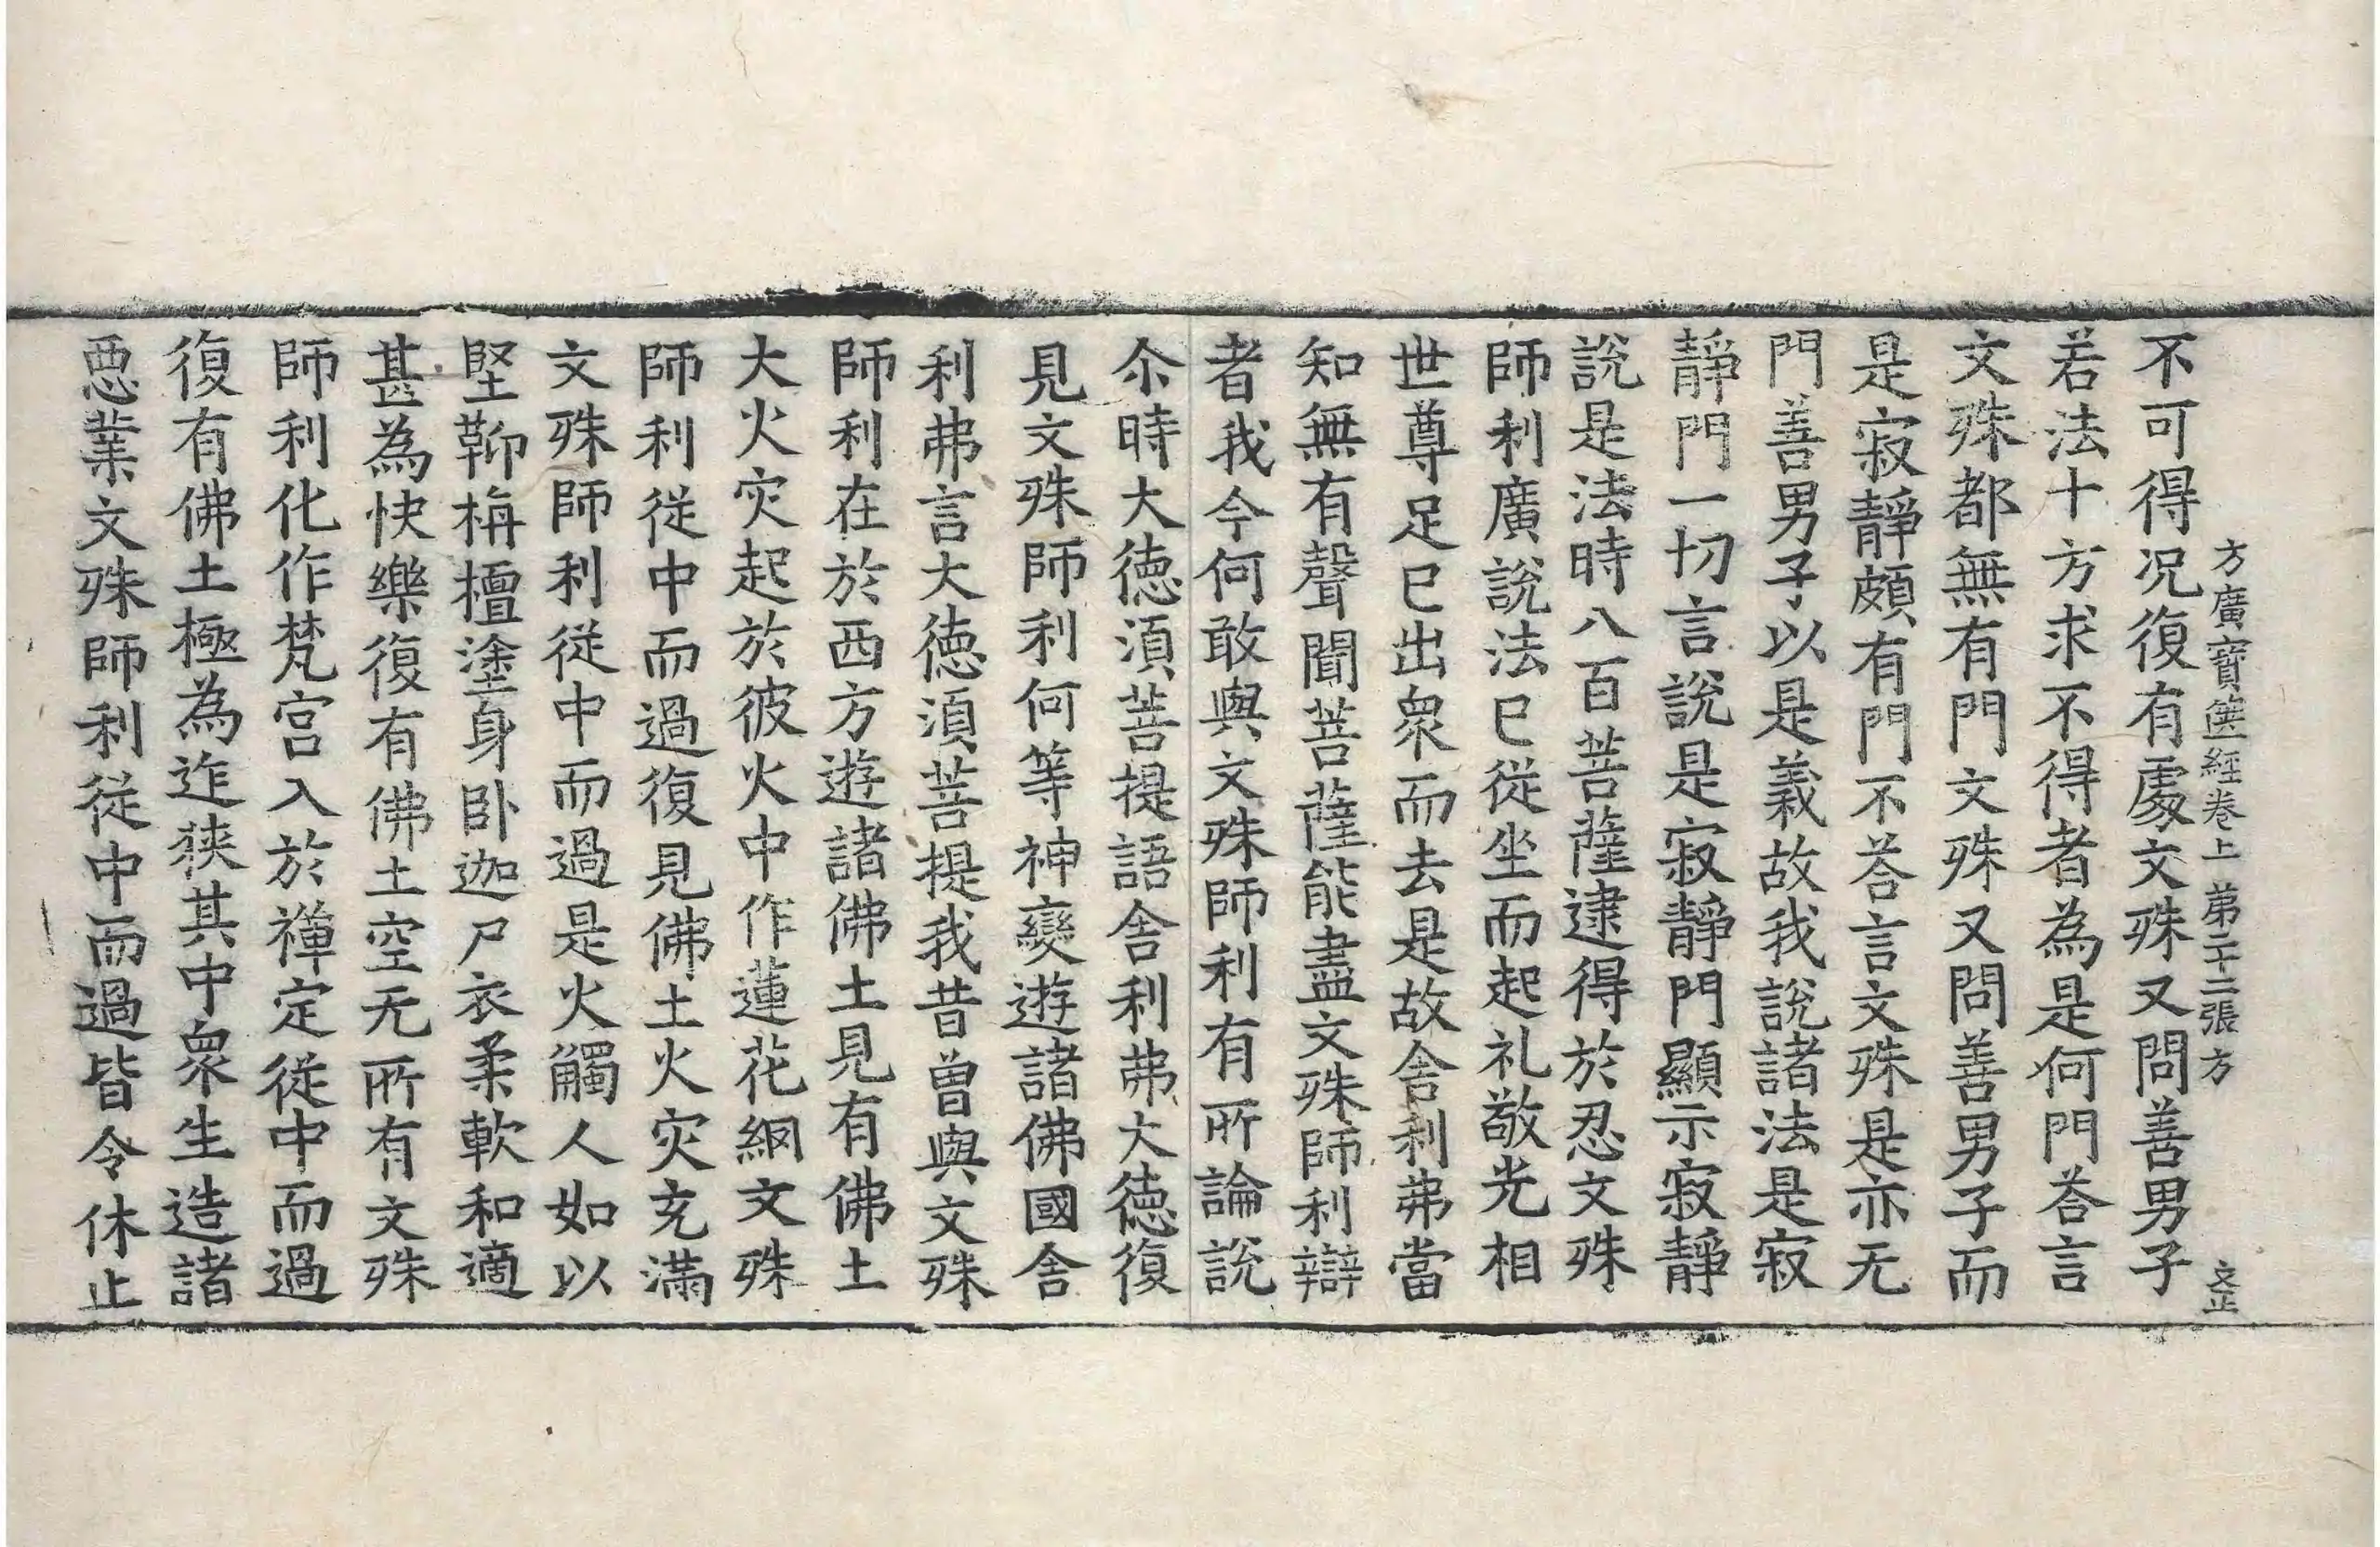 方廣寳篋經卷上 弟二十二張 方 文正
不可得况復有處文殊又問善男子
若法十方求不得者為是何門荅言
文殊都無有門文殊又問善男子而
是寂靜頗有門不荅言文殊是亦无
門善男子以是義故我說諸法是寂
靜門一切言說是寂靜門顯示寂靜
說是法時八百菩薩逮得於忍文殊
師利廣說法已従坐而起礼敬光相
世尊足已出衆而去是故舎利弗當
知無有聲聞菩薩能盡文殊師利辯
者我今何敢與文殊師利有所論說
尒時大徳湏菩提語舎利弗大徳復
見文殊師利何等神變遊諸佛國舎
利弗言大徳湏菩提我昔曽與文殊
師利在於西方遊諸佛土見有佛土
大火灾起於彼火中作蓮花網文殊
師利従中而過復見佛土火灾充滿
文殊師利従中而過是火觸人如以
堅鞕栴檀塗身卧迦尸衣柔軟和適
甚為快樂復有佛土空无所有文殊
師利化作梵宮入於禅定従中而過
復有佛土極為迮狹其中衆生造諸
惡業文殊師利従中而過皆令休止